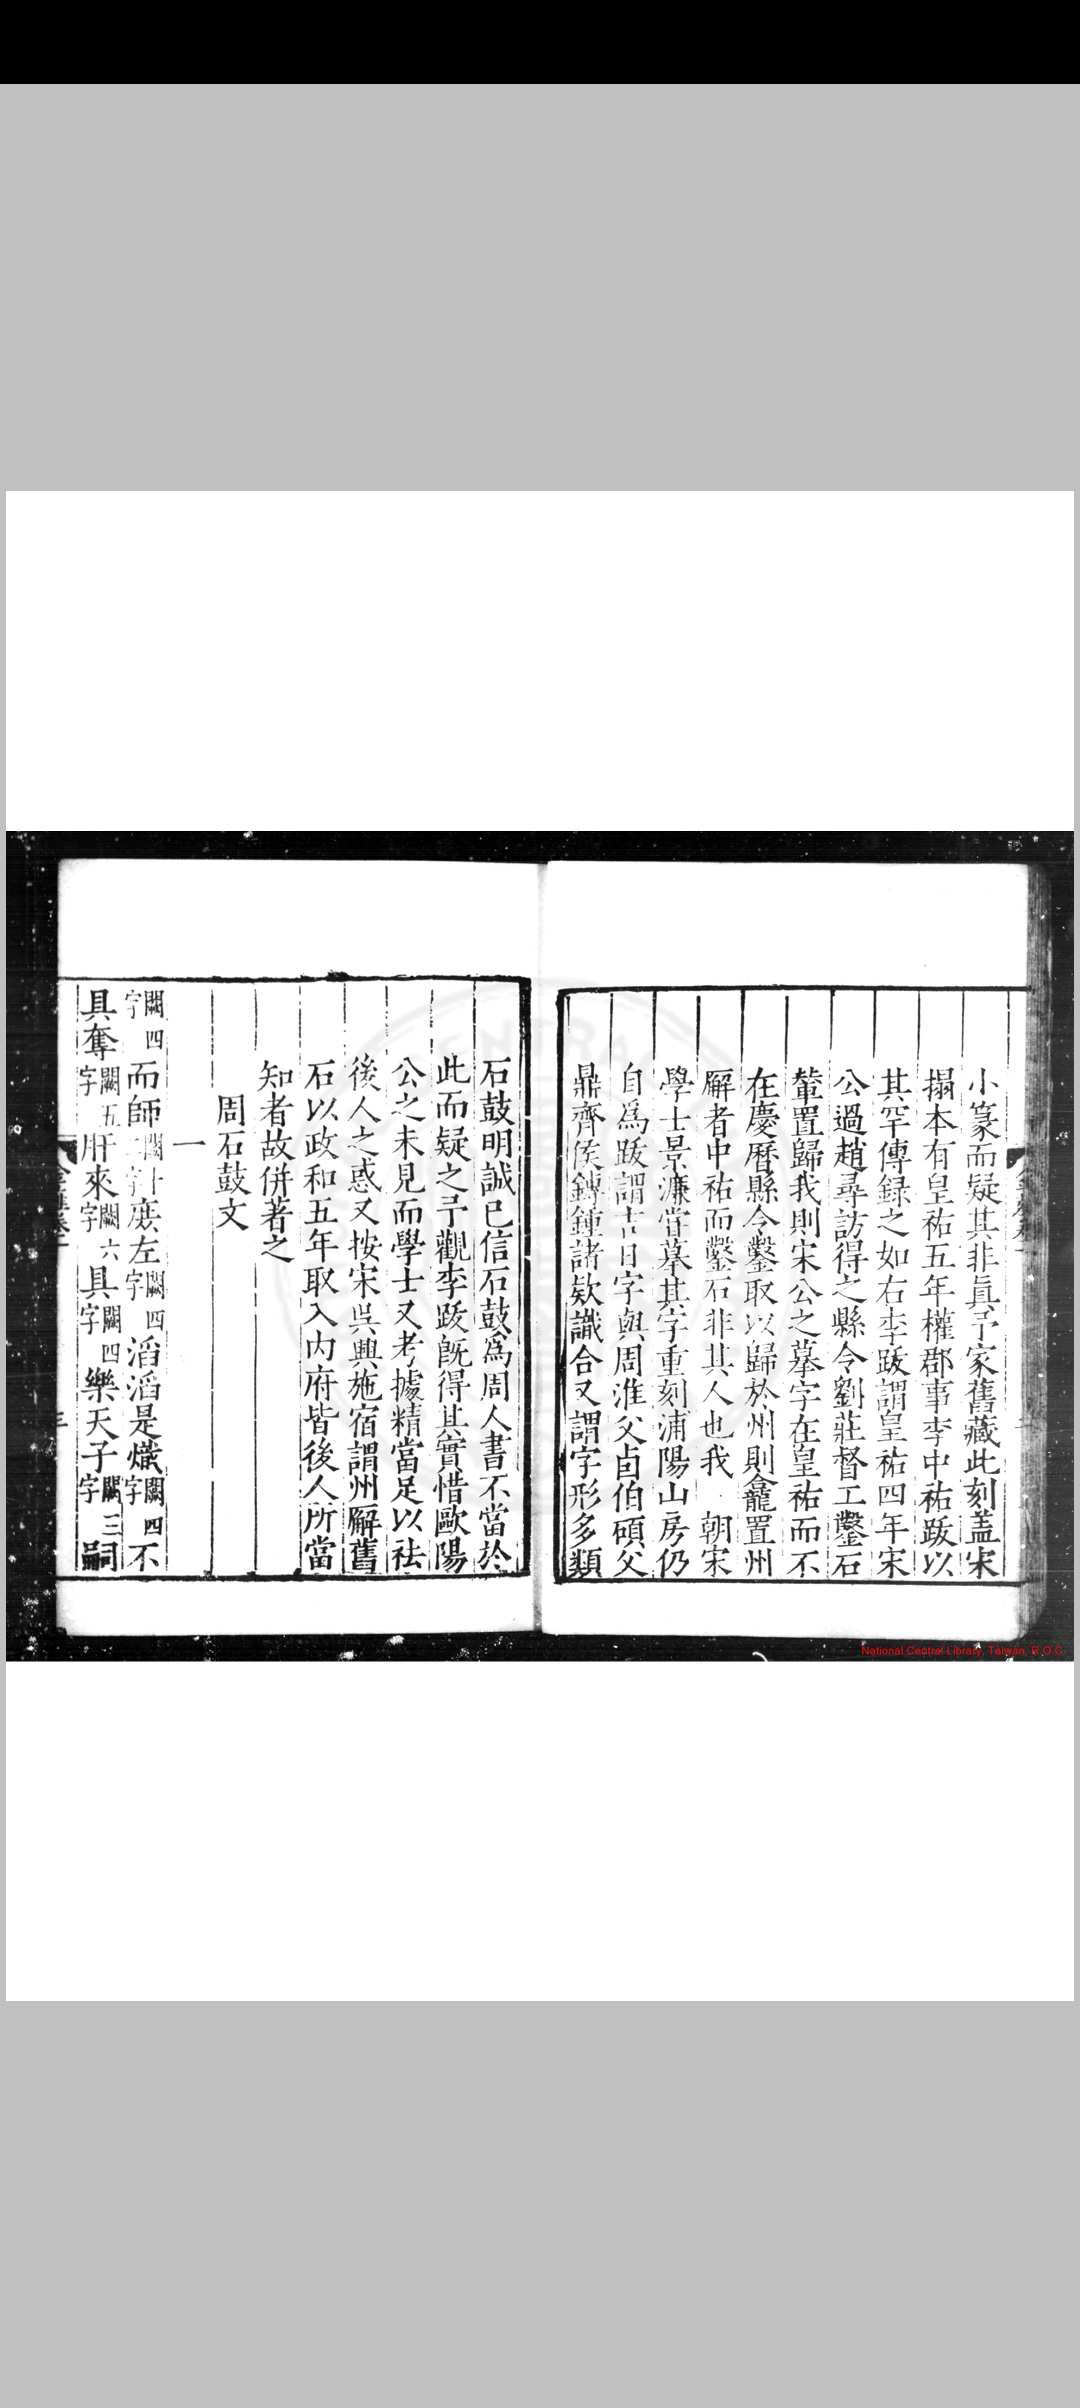 小篆而疑其非眞予家舊藏此刻盖宋
搨本有皇祐五年權郡事李中祐跋以
其罕傳録之如右李跋謂皇祐四年宋
公過趙尋訪得之縣令劉莊督工鑿石
輦置歸我則宋公之摹字在皇祐而不
在慶曆縣令鑿取以歸於州則龕置州
廨者中祐而鑿石非其人也我 朝宋
學士景濂嘗摹其字重刻浦陽山房仍
自爲跋謂吉日字與周淮父卣伯碩父
鼎齊侯鎛鍾諸欵識合又謂字形多類
石鼓明誠已信石鼓爲周人書不當於
此而疑之予觀李跋旣得其實惜歐陽
公之未見而學士又考據精當足以祛
後人之惑又按宋吳興施宿謂州廨舊
石以政和五年取入内府皆後人所當
知者故併著之
周石鼓文
一
闕四字而師闕二字廾庶左闕四字滔滔是熾闕四字不
具奪闕五字肝來闕六字具闕四字樂天子闕三字嗣
National Central Library, Taiwan, R.O.C.